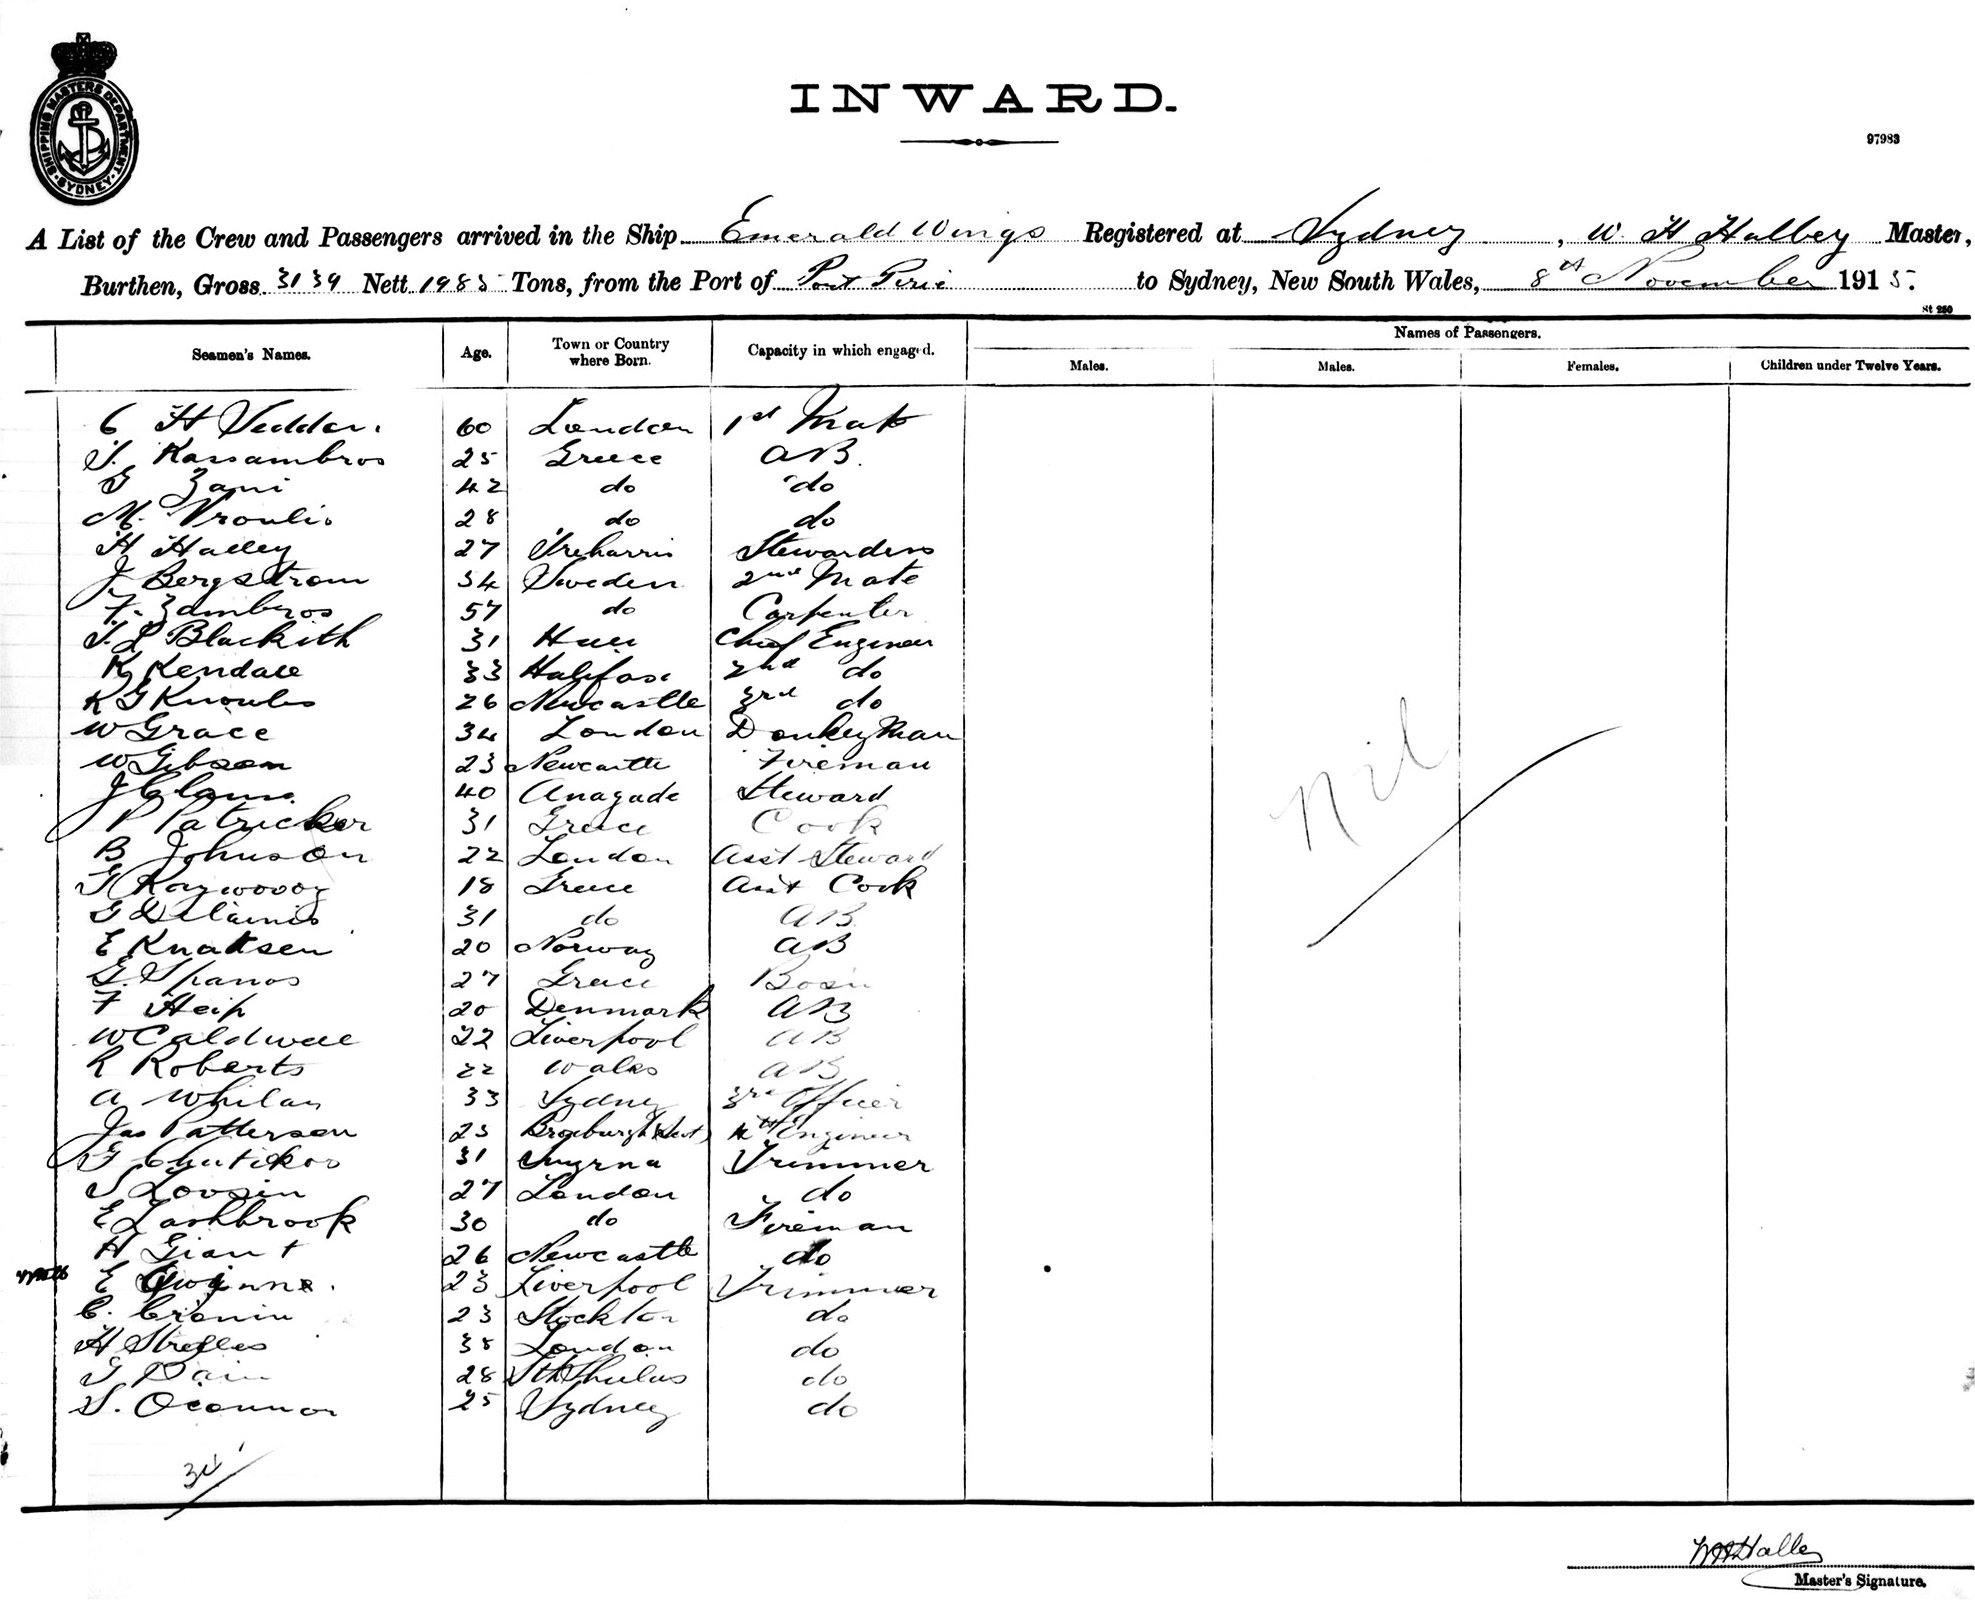 SHIPPING MASTERS DEPARTMENT. SYDNEY.
INWARD.
97983
A List of the Crew and Passengers arrived in the Ship Emerald Wings Registered at Sydney, W. H Halley Master,
Burthen, Gross 3139 Nett 1985 Tons, from the Port of Port Pirie to Sydney, New South Wales, 8th November 1915.
St 250
Names of Passengers.
Seamen's Names. Age. Town or Country where Born. Capacity in which engaged. Males. Males. Females. Children under Twelve Years.
C H Vedder. 60 London 1st Mate
25 Greece AB.
G Zani 42 do do
M. Vroulis 28 do do
H Halley 27 Treharris Stewardess
J Bergstrom 54 Sweden 2nd Mate
F. Zambros 57 do Carpenter
T. L Blackith 31 Hull Chief Engineer
K Kendall 33 Halifax 2nd do
R G Knowles 26 Newcastle 3rd do
W Grace 34 London Donkeyman
W Gibson 23 Newcastle Fireman
J 40 Steward
P Patricker 31 Greece Cook
B Johnson 22 London Asst Steward
G 18 Greece Asst Cook
G 31 do AB
E Knutsen 20 Norway AB
G. Spanos 27 Greece Bosn
F Heip 20 Denmark AB
W Caldwell 22 Liverpool AB
R Roberts 22 Wales AB
A Whilan 33 Sydney 3rd Officer
Jas Patterson 25 4th Engineer
G 31 Smyrna Trimmer
S Lovsin 27 London do
E Lashbrook 30 do Fireman
H Giant 26 Newcastle do
E Gwynne. 23 Liverpool Trimmer
C. Cronin 23 Stockton do
H 38 London do
28 Sth Shields do
S. Oconnor 25 Sydney do
Nil
34
WH Halley
Master's Signature.